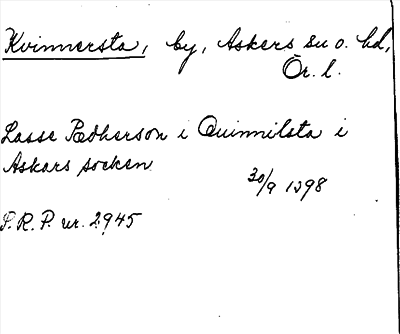 Kvinnersta, by, Askers sn o. hd,
Ör. l.
Lasse Pædherson i Quinnilsta i
Askars socken
30/9 1398
S.R.P. nr. 2945